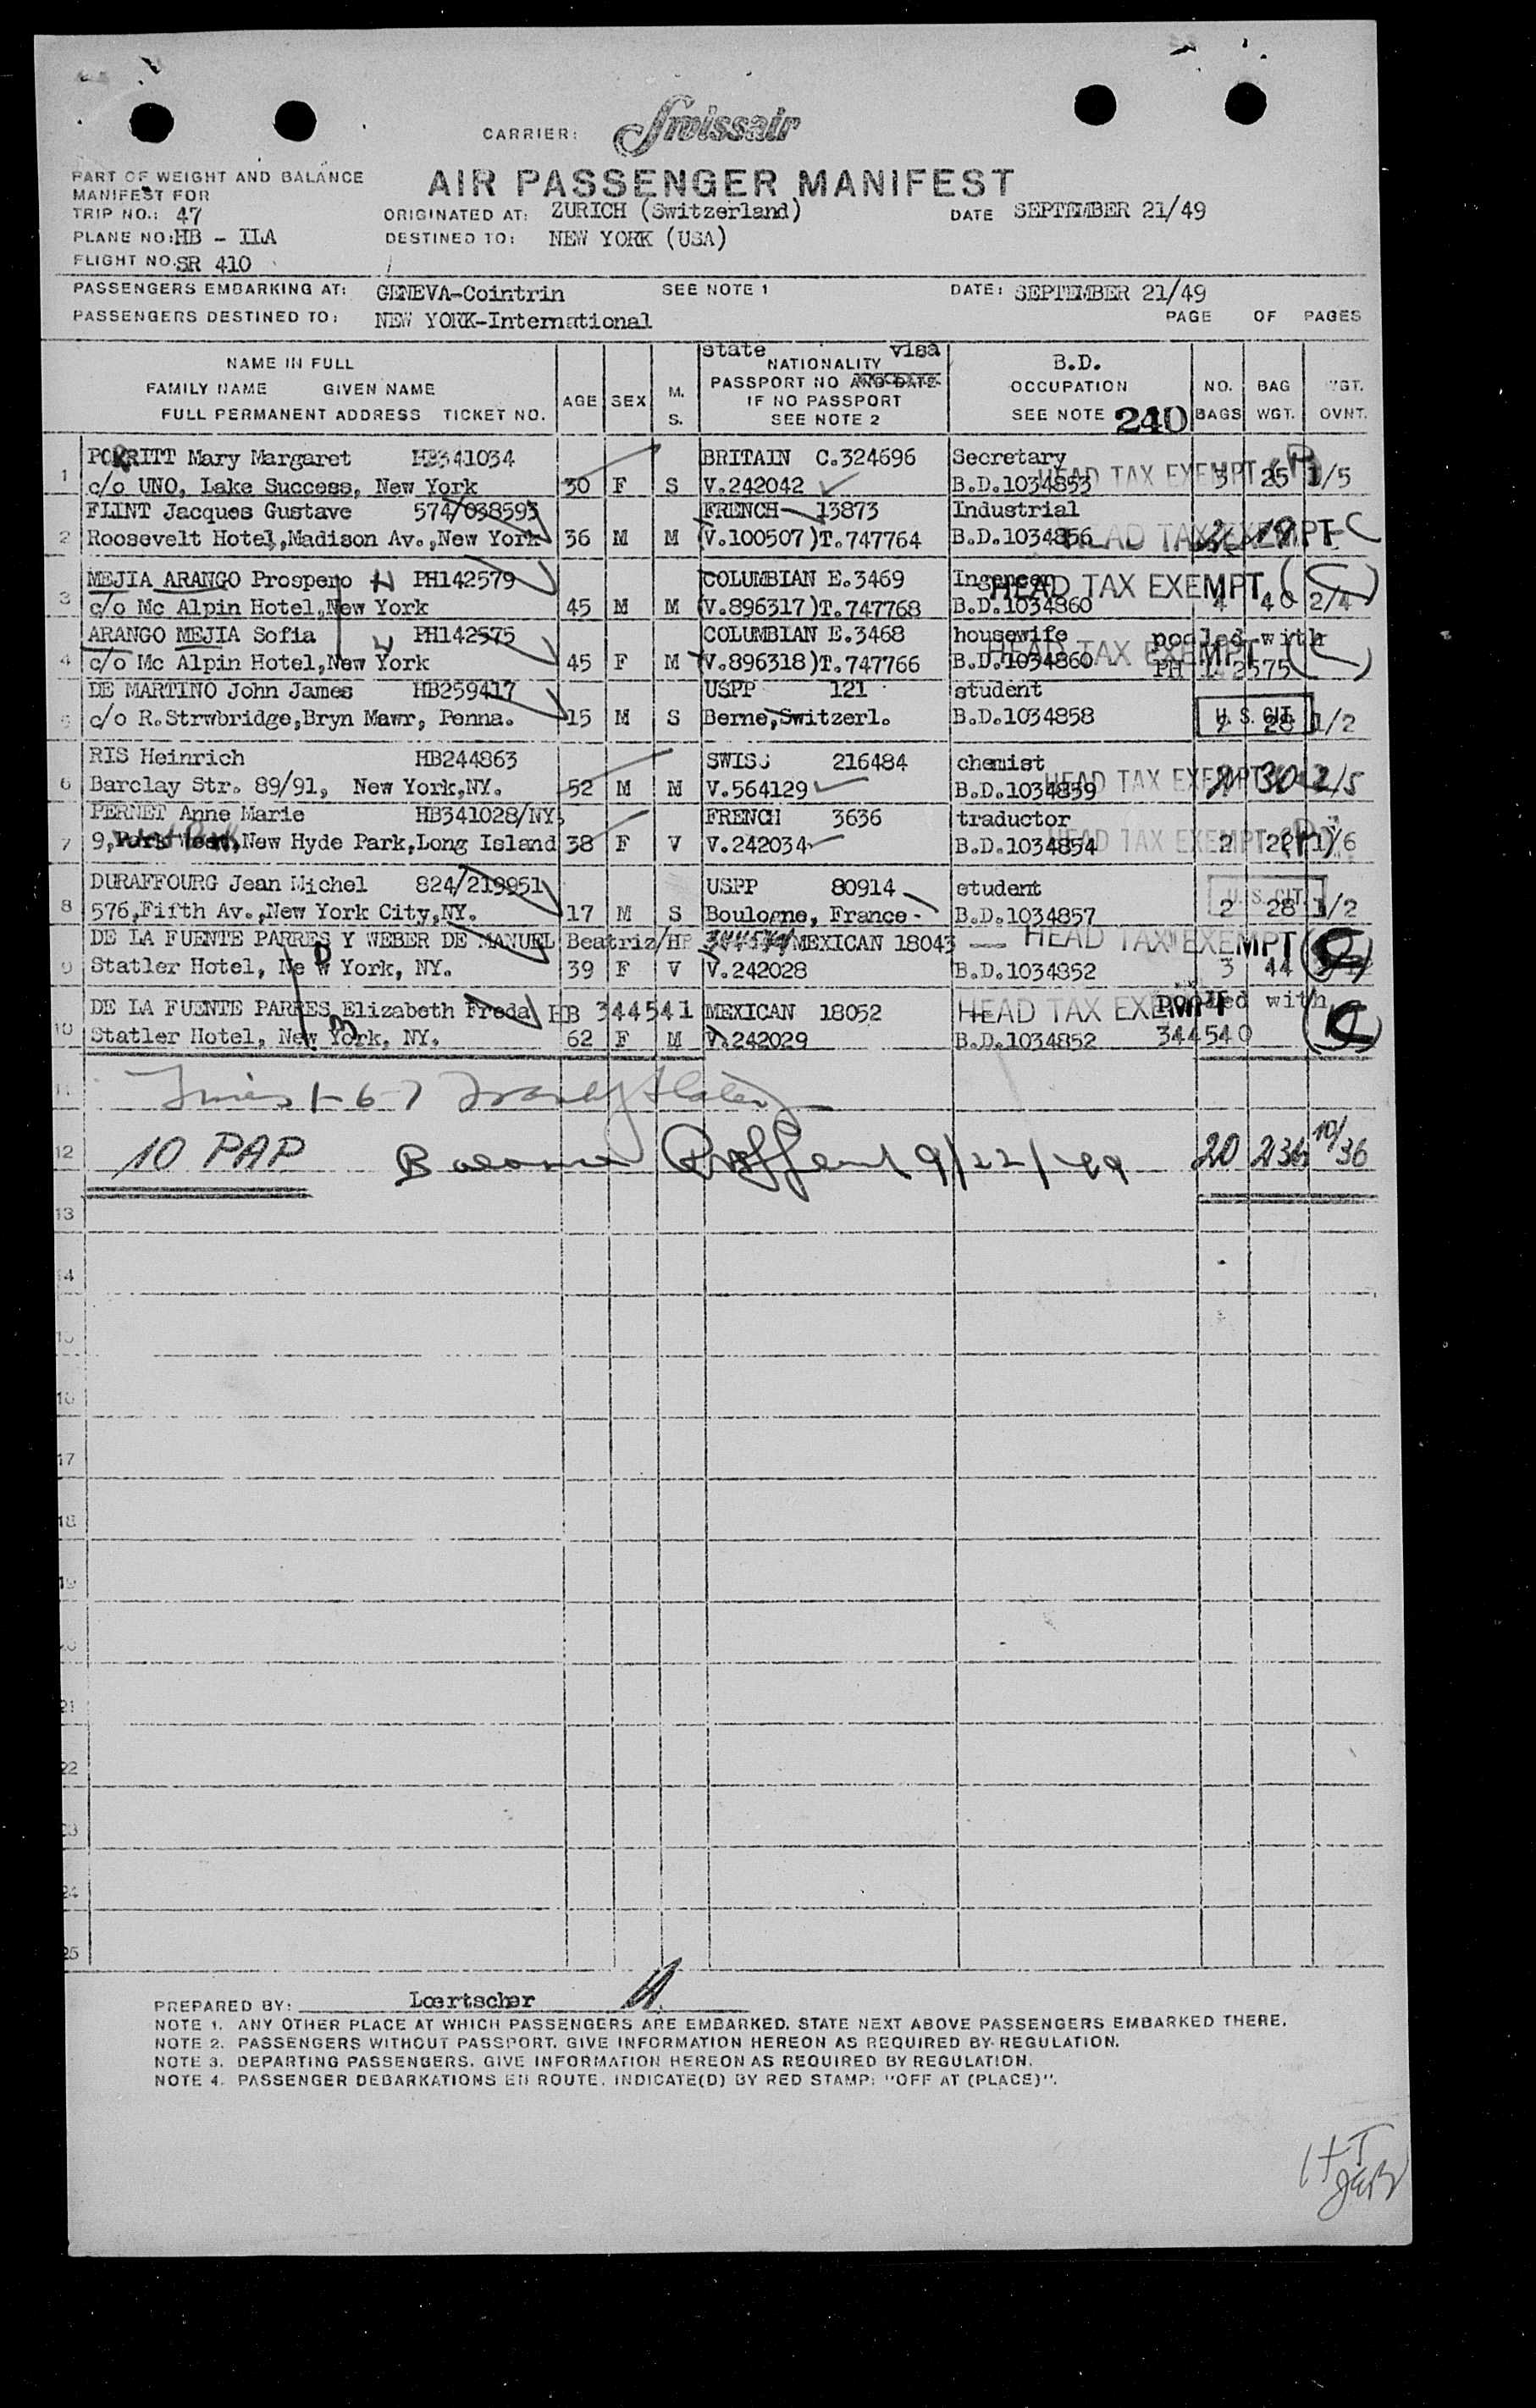 CARRIER: Swissair
AIR PASSENGER MANIFEST
PART OF WEIGHT AND BALANCE
MANIFEST FOR
TRIP NO.: 47
ORIGINATED AT: ZURICH (Switzerland)
DATE SEPTEMBER 21/49
PLANE NO: HB - ILA
DESTINED TO: NEW YORK (USA)
FLIGHT NO. SR 410
PASSENGERS EMBARKING AT: GENEVA-Cointrin SEE NOTE 1 DATE: SEPTEMBER 21/49
PASSENGERS DESTINED TO: NEW YORK-International PAGE OF PAGES
NAME IN FULL
FAMILY NAME GIVEN NAME
FULL PERMANENT ADDRESS TICKET NO.
AGE SEX M. S.
state visa
NATIONALITY
PASSPORT NO AND DATE
IF NO PASSPORT
SEE NOTE 2
B.D.
OCCUPATION
SEE NOTE 240
NO. BAGS
BAG WGT.
WGT. OVNT.
1 PORRITT Mary Margaret HB341034 BRITAIN C.324696 Secretary
c/o UNO, Lake Success, New York 30 F S V.242042 B.D.1034853 HEAD TAX EXEMPT (P) 3 25 1/5
2 FLINT Jacques Gustave 574/038593 FRENCH 13873 Industrial
Roosevelt Hotel,Madison Av.,New York 36 M M (V.100507)T.747764 B.D.1034856 HEAD TAX EXEMPT C 2 18
3 MEJIA ARANGO Prospero H PH142579 COLUMBIAN E.3469 HEAD TAX EXEMPT (C)
c/o Mc Alpin Hotel,New York 45 M M (V.896317)T.747768 B.D.1034860 4 40 2/4
4 ARANGO MEJIA Sofia PH142575 COLUMBIAN E.3468 housewife pooled with
c/o Mc Alpin Hotel,New York 45 F M (V.896318)T.747766 B.D.1034860 HEAD TAX EXEMPT PH 142575
5 DE MARTINO John James HB259417 USPP 121 student
c/o R.Strwbridge,Bryn Mawr, Penna. 15 M S Berne,Switzerl. B.D.1034858 U. S. CIT. 28 1/2
6 RIS Heinrich HB244863 SWISS 216484 chemist
Barclay Str. 89/91, New York,NY. 52 M M V.564129 B.D.1034859 HEAD TAX EXEMPT 2 30 2/5
7 PERNET Anne Marie HB341028/NY FRENCH 3636 traductor
9, New Hyde Park,Long Island 38 F V V.242034 B.D.1034854 HEAD TAX EXEMPT (P) 2 22 1/6
8 DURAFFOURG Jean Michel 824/219951 USPP 80914 student
576,Fifth Av.,New York City,NY. 17 M S Boulogne, France. B.D.1034857 U. S. CIT. 2 28 1/2
9 DE LA FUENTE PARRES Y WEBER DE MANUEL Beatriz/HB MEXICAN 18043 HEAD TAX EXEMPT (C)
Statler Hotel, Ne w York, NY. 39 F V V.242028 B.D.1034852 3 44
10 DE LA FUENTE PARRES Elizabeth Freda HB 344541 MEXICAN 18052 HEAD TAX EXEMPT pooled with
Statler Hotel, New York, NY. 62 F M V.242029 B.D.1034852 344540 (C)
11 Lines 1-6-7
12 10 PAP 9/22/49 20 236 10/36
13
14
15
16
17
18
19
20
21
22
23
24
25
PREPARED BY: Loertscher
NOTE 1. ANY OTHER PLACE AT WHICH PASSENGERS ARE EMBARKED. STATE NEXT ABOVE PASSENGERS EMBARKED THERE.
NOTE 2. PASSENGERS WITHOUT PASSPORT. GIVE INFORMATION HEREON AS REQUIRED BY REGULATION.
NOTE 3. DEPARTING PASSENGERS. GIVE INFORMATION HEREON AS REQUIRED BY REGULATION.
NOTE 4. PASSENGER DEBARKATIONS EN ROUTE. INDICATE(D) BY RED STAMP: "OFF AT (PLACE)".